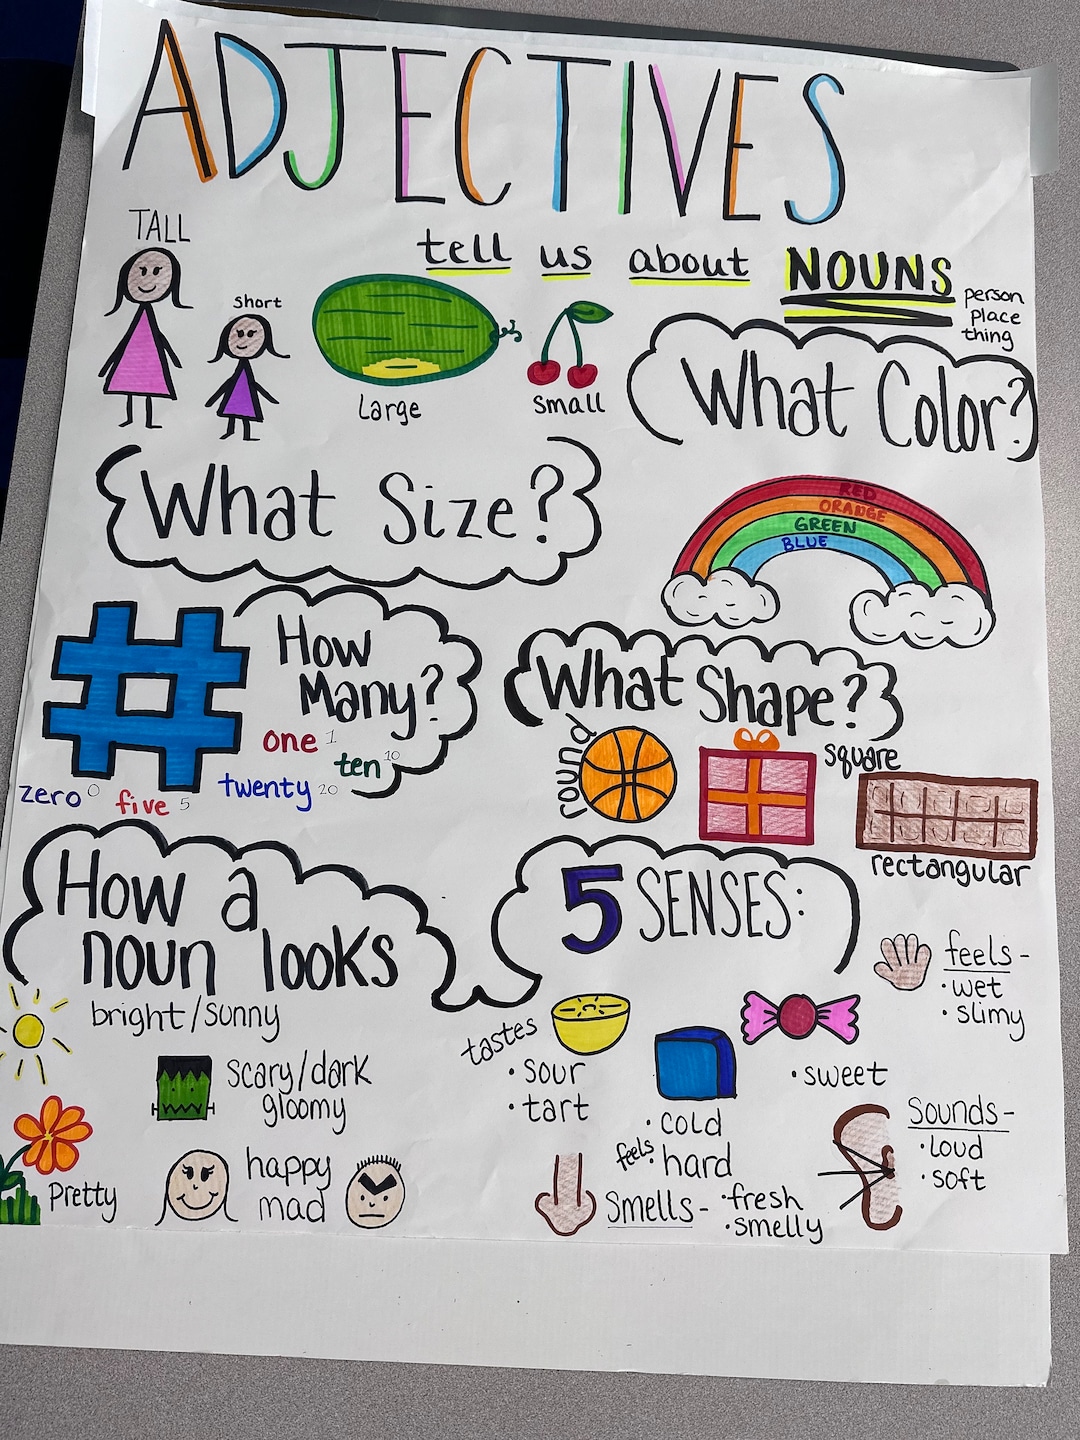 ADJECTIVES
tell us about NOUNS
person
place
thing
TALL
short
Large
small
What Color?
What Size?
RED
ORANGE
GREEN
BLUE
#
How
Many?
one 1
ten 10
zero 0
five 5
twenty 20
What Shape?
round
square
rectangular
How a
noun looks
bright/sunny
scary/dark
gloomy
Pretty
happy
mad
5 SENSES:
feels-
• wet
• slimy
tastes
• sour
• tart
• sweet
• cold
feels • hard
Sounds-
• loud
• soft
Smells- • fresh
• smelly